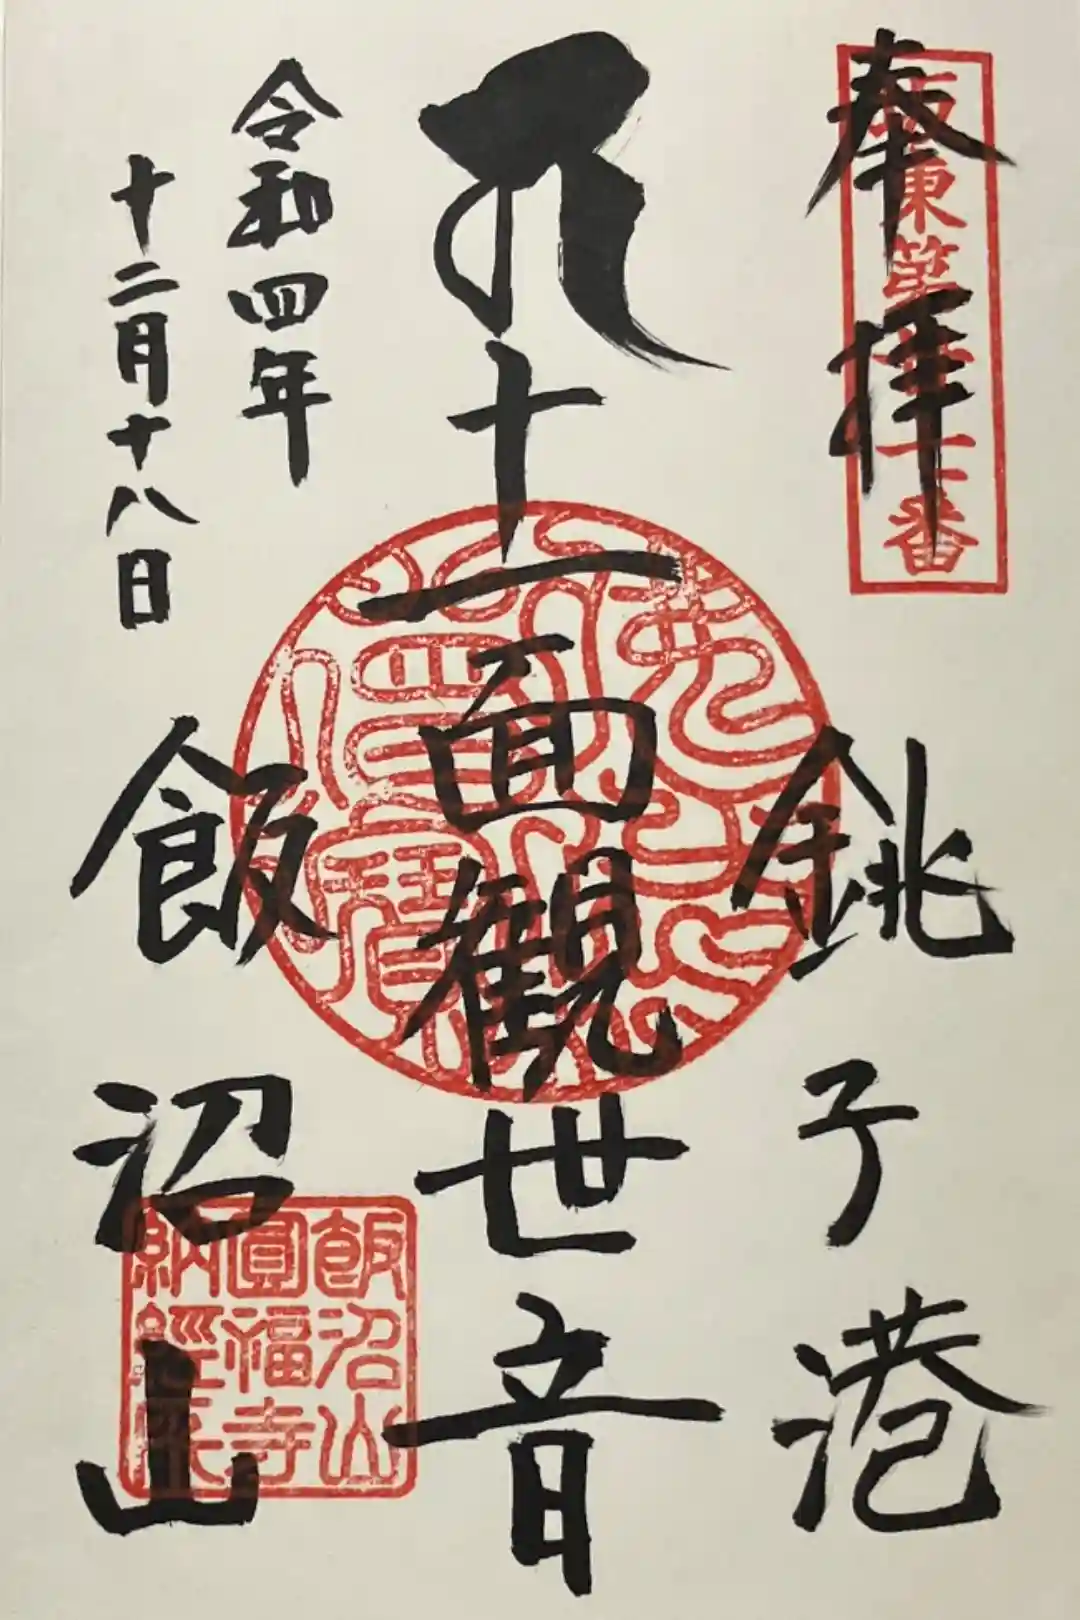 奉拝
坂東第二十七番
銚子港
十一面観世音
令和四年
十二月十八日
飯沼山
飯沼山
圓福寺
納經